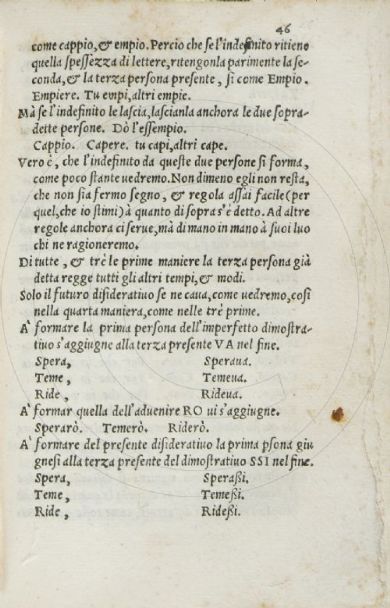 46
come cappio, & empio. Percio che se l'indefinito ritiene
quella spessezza di lettere, ritengonla parimente la se-
conda, & la terza persona presente, si come Empio.
Empiere. Tu empi, altri empie.
Mà se l'indefinito le lascia, lascianla anchora le due sopra-
dette persone. Dò l'essempio.
Cappio. Capere. tu capi, altri cape.
Vero è, che l'indefinito da queste due persone si forma,
come poco stante uedremo. Non dimeno egli non resta,
che non sia fermo segno, & regola assai facile (per
quel, che io stimi) à quanto di sopra s'è detto. Ad altre
regole anchora ci serue, mà di mano in mano à suoi luo
chi ne ragioneremo.
Di tutte, & trè le prime maniere la terza persona già
detta regge tutti gli altri tempi, & modi.
Solo il futuro disideratiuo se ne caua, come uedremo, così
nella quarta maniera, come nelle trè prime.
A' formare la prima persona dell'imperfetto dimostra-
tiuo s'aggiugne alla terza presente VA nel fine.
Spera, Speraua.
Teme, Temeua.
Ride, Rideua.
A' formar quella dell'aduenire RO ui s'aggiugne.
Sperarò. Temerò. Riderò.
A' formare del presente disideratiuo la prima psona giu
gnesi alla terza presente del dimostratiuo SSI nel fine.
Spera, Speraßi.
Teme, Temeßi.
Ride, Rideßi.